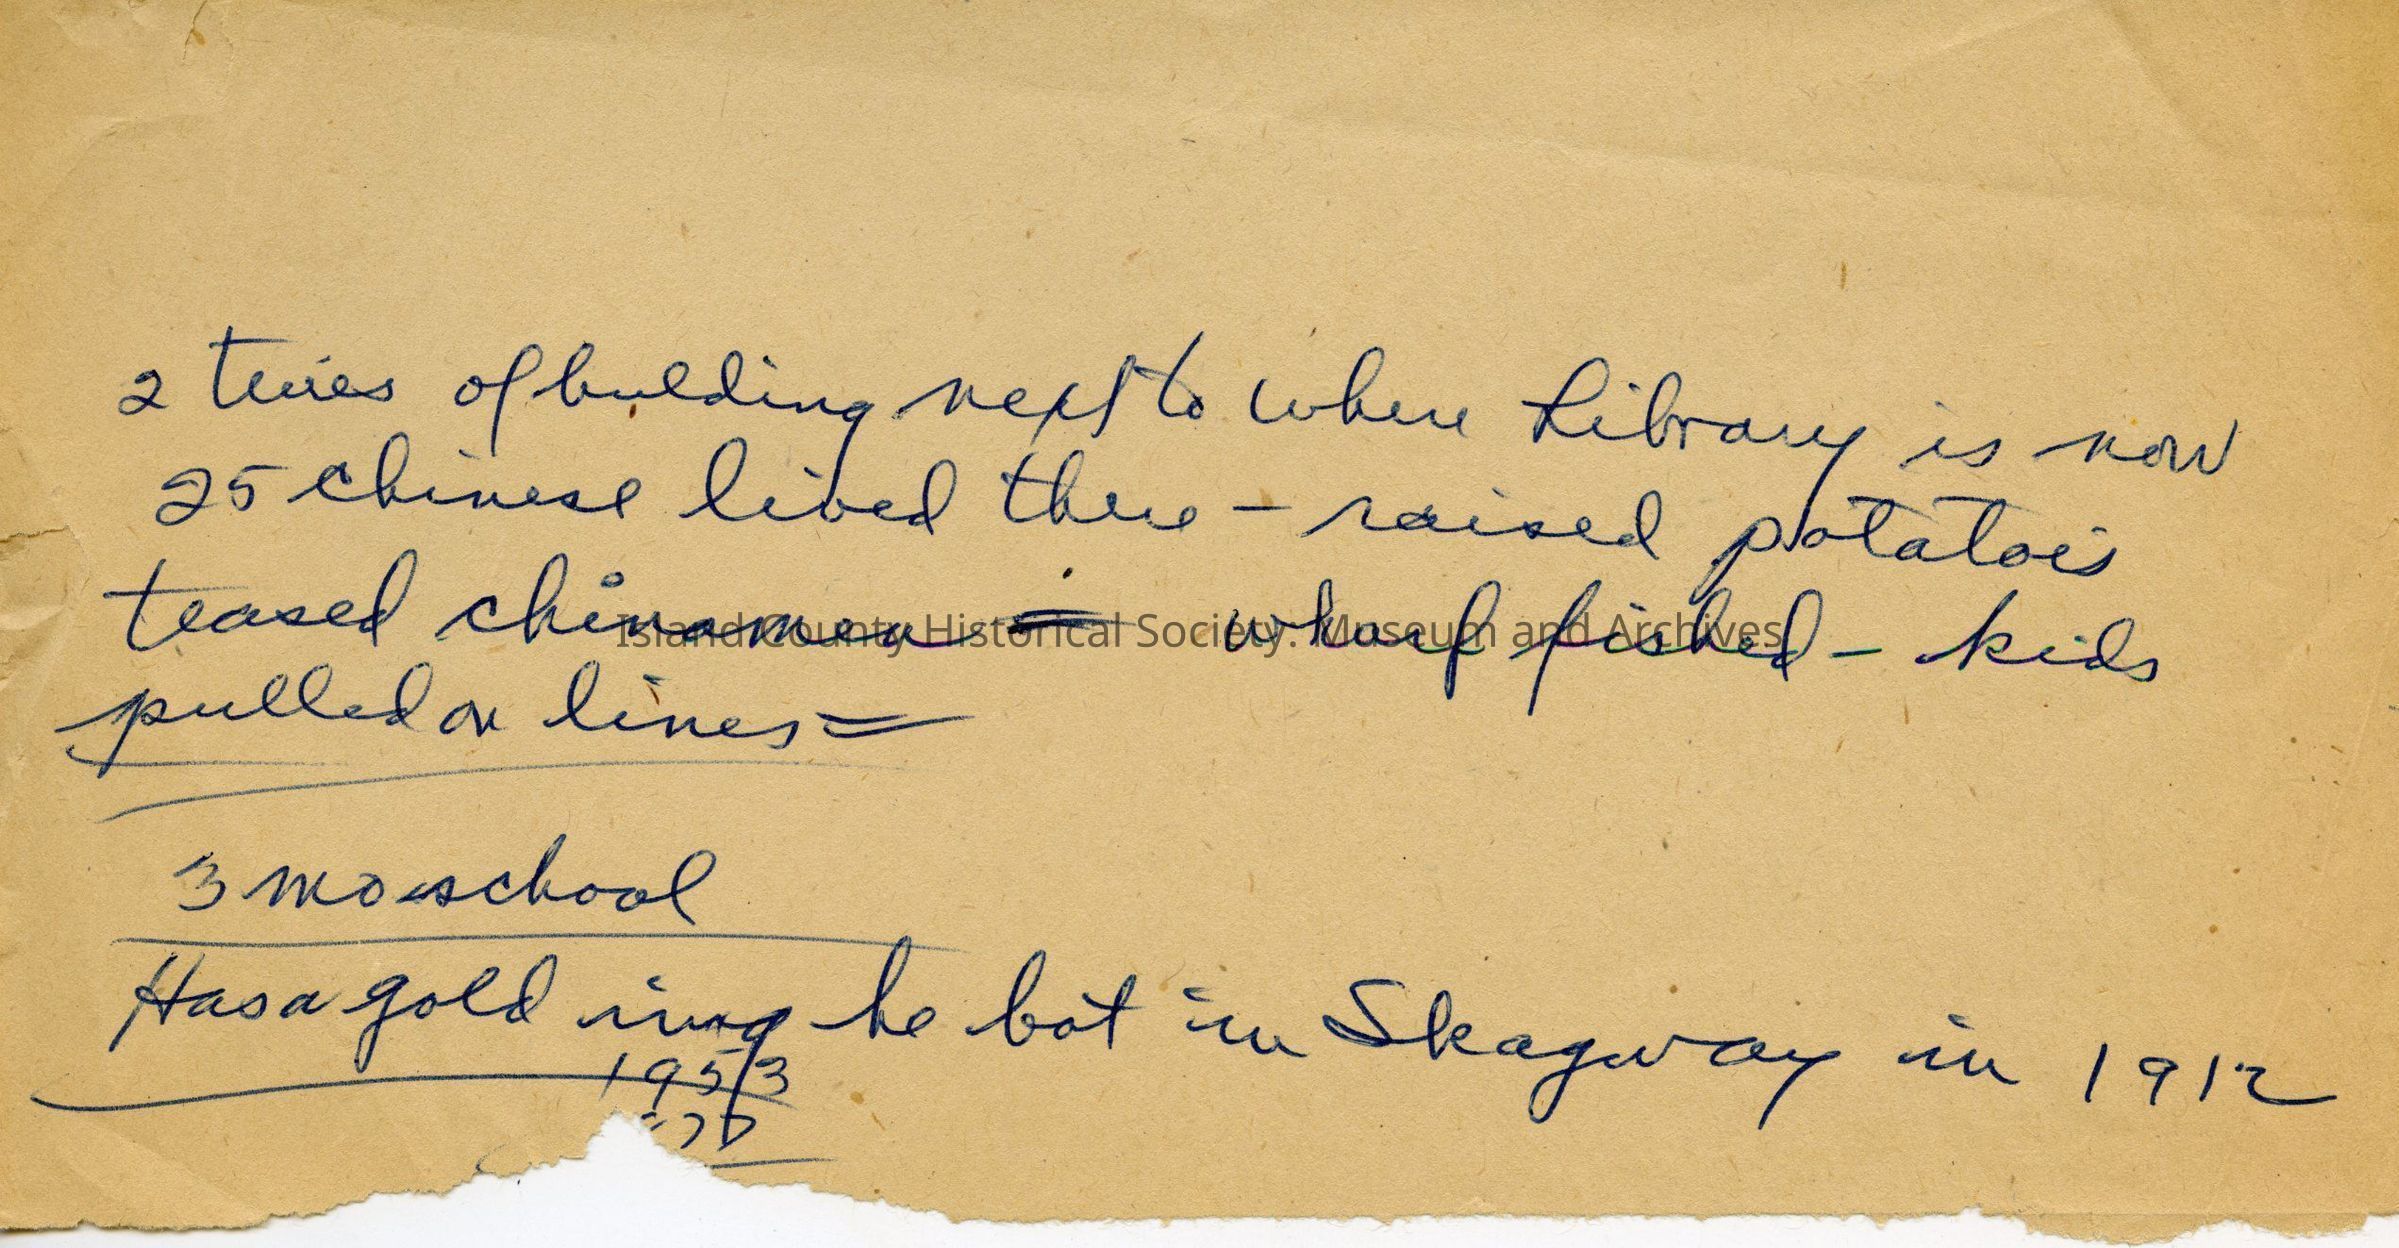 2 tiers of building next to where Library is now
25 chinese lived there - raised potatois
teased chinamen = wharf fished - kids
Island County Historical Society. Museum and Archives
pulled on lines =
3 mo school
Has a gold ring he bot in Skagway in 1912
1953